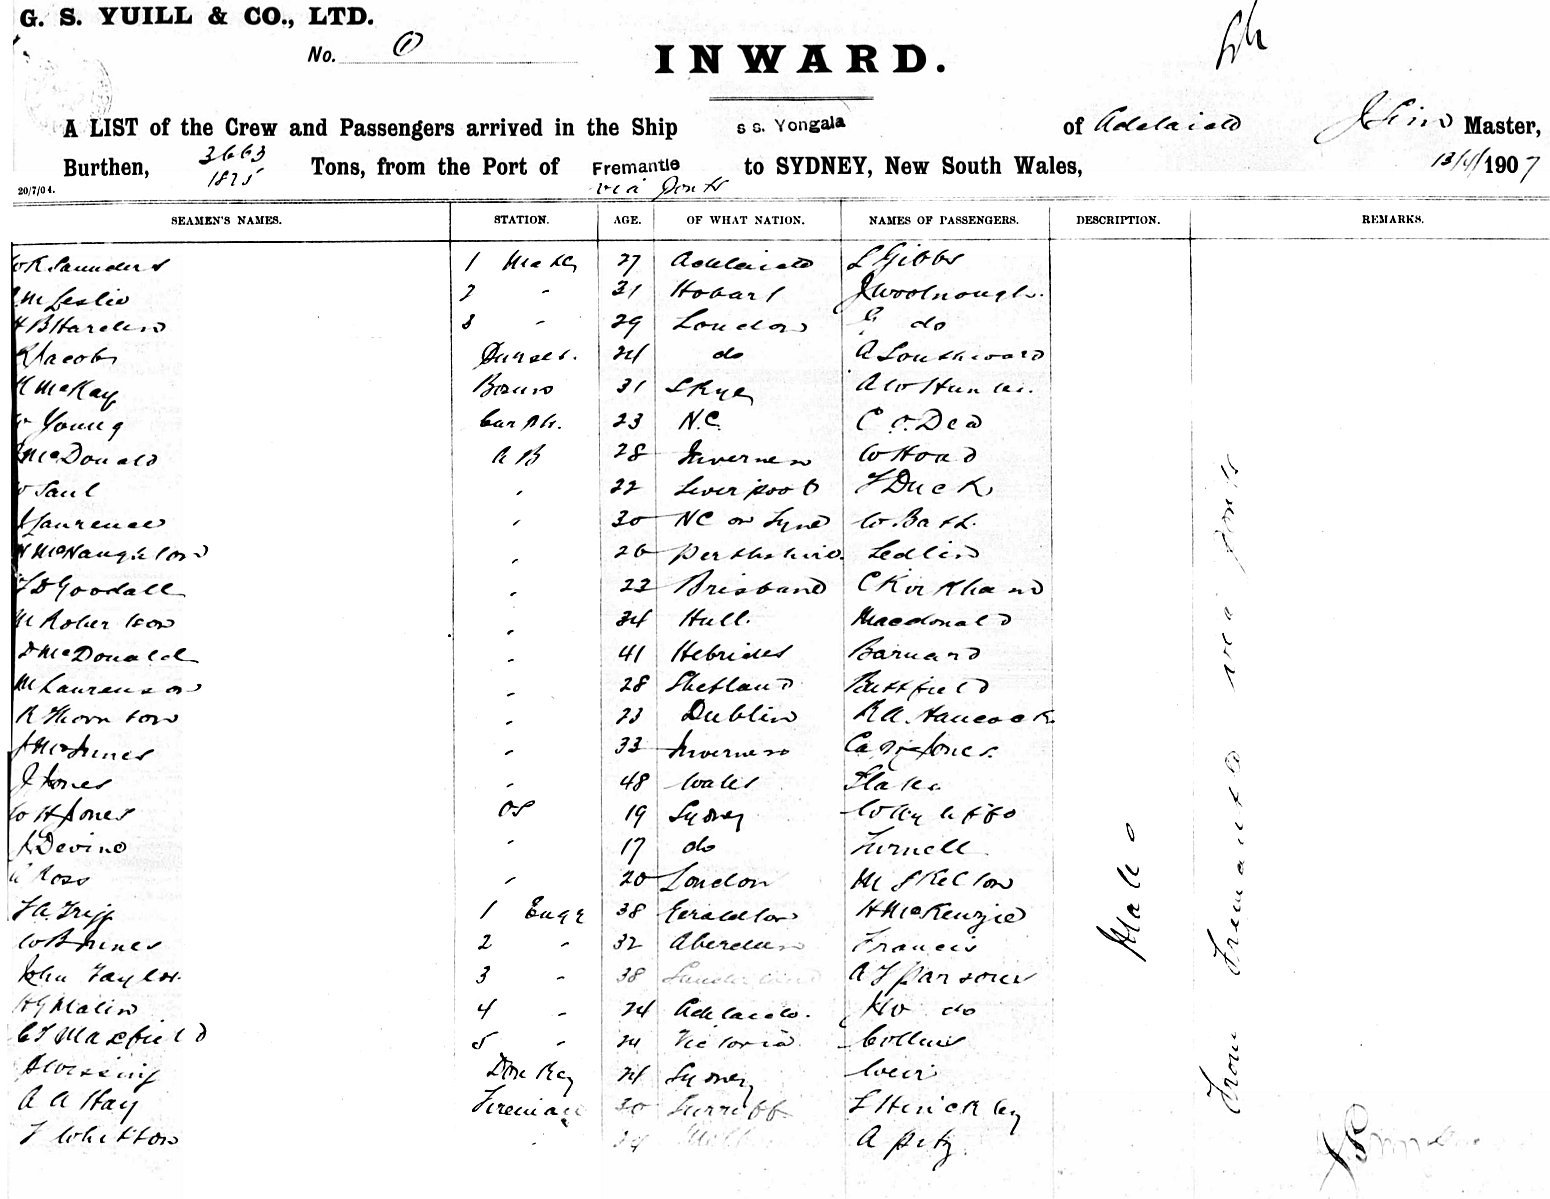 G. S. YUILL & CO., LTD.
No. 1
INWARD.
A LIST of the Crew and Passengers arrived in the Ship ss. Yongala of Adelaide Master,
Burthen, 3663 Tons, from the Port of Fremantle to SYDNEY, New South Wales, 13/4/1907
1825 via ports
20/7/04.
SEAMEN'S NAMES. STATION. AGE. OF WHAT NATION. NAMES OF PASSENGERS. DESCRIPTION. REMARKS.
W K Saunders 1 Mate 27 Adelaide L Gibbs
M Leslie 2 " 31 Hobart J Woolnough.
H B Harden 3 " 29 London G do
K Jacobs 24 do A Southward
K McKay 31 Skye A W Hunter.
W Young Carptr. 23 N.C. C O.Dea
McDonald A B 28 Inverness W Hoad
W Saul " 22 Liverpool F Duck
J Laurence " 30 NC on Tyne W. Bath.
N McNaughton " 26 Perthshire Ledlin
F D Goodall " 22 Brisbane C Kirkham
M Robertson " 34 Hull. Macdonald
D McDonald " 41 Hebrides Barnard
M Laurenson " 28 Shetland Butffield
R Thornton " 23 Dublin R A. Hancock
J McInnes " 33 Inverness Jones.
J Jones " 48 Wales
W H Jones OS 19 Sydney
J Devine " 17 do Turnell
A Ross " 20 London M Skelton
F A. Tripp 1 Engr 38 Geraldton H McKenzie
W B Innes 2 " 32 Aberdeen Francis
John Taylor. 3 " 38 Sunderland A T Parsons
H G Malin 4 " 24 Adelaide. do
C F Maxfield 5 " 24 Victoria Collins
Donkey 24 Sydney Weir
A A Hay Fireman 30 L Hinckley
F Whitton " A Petz
Male
From Fremantle via ports